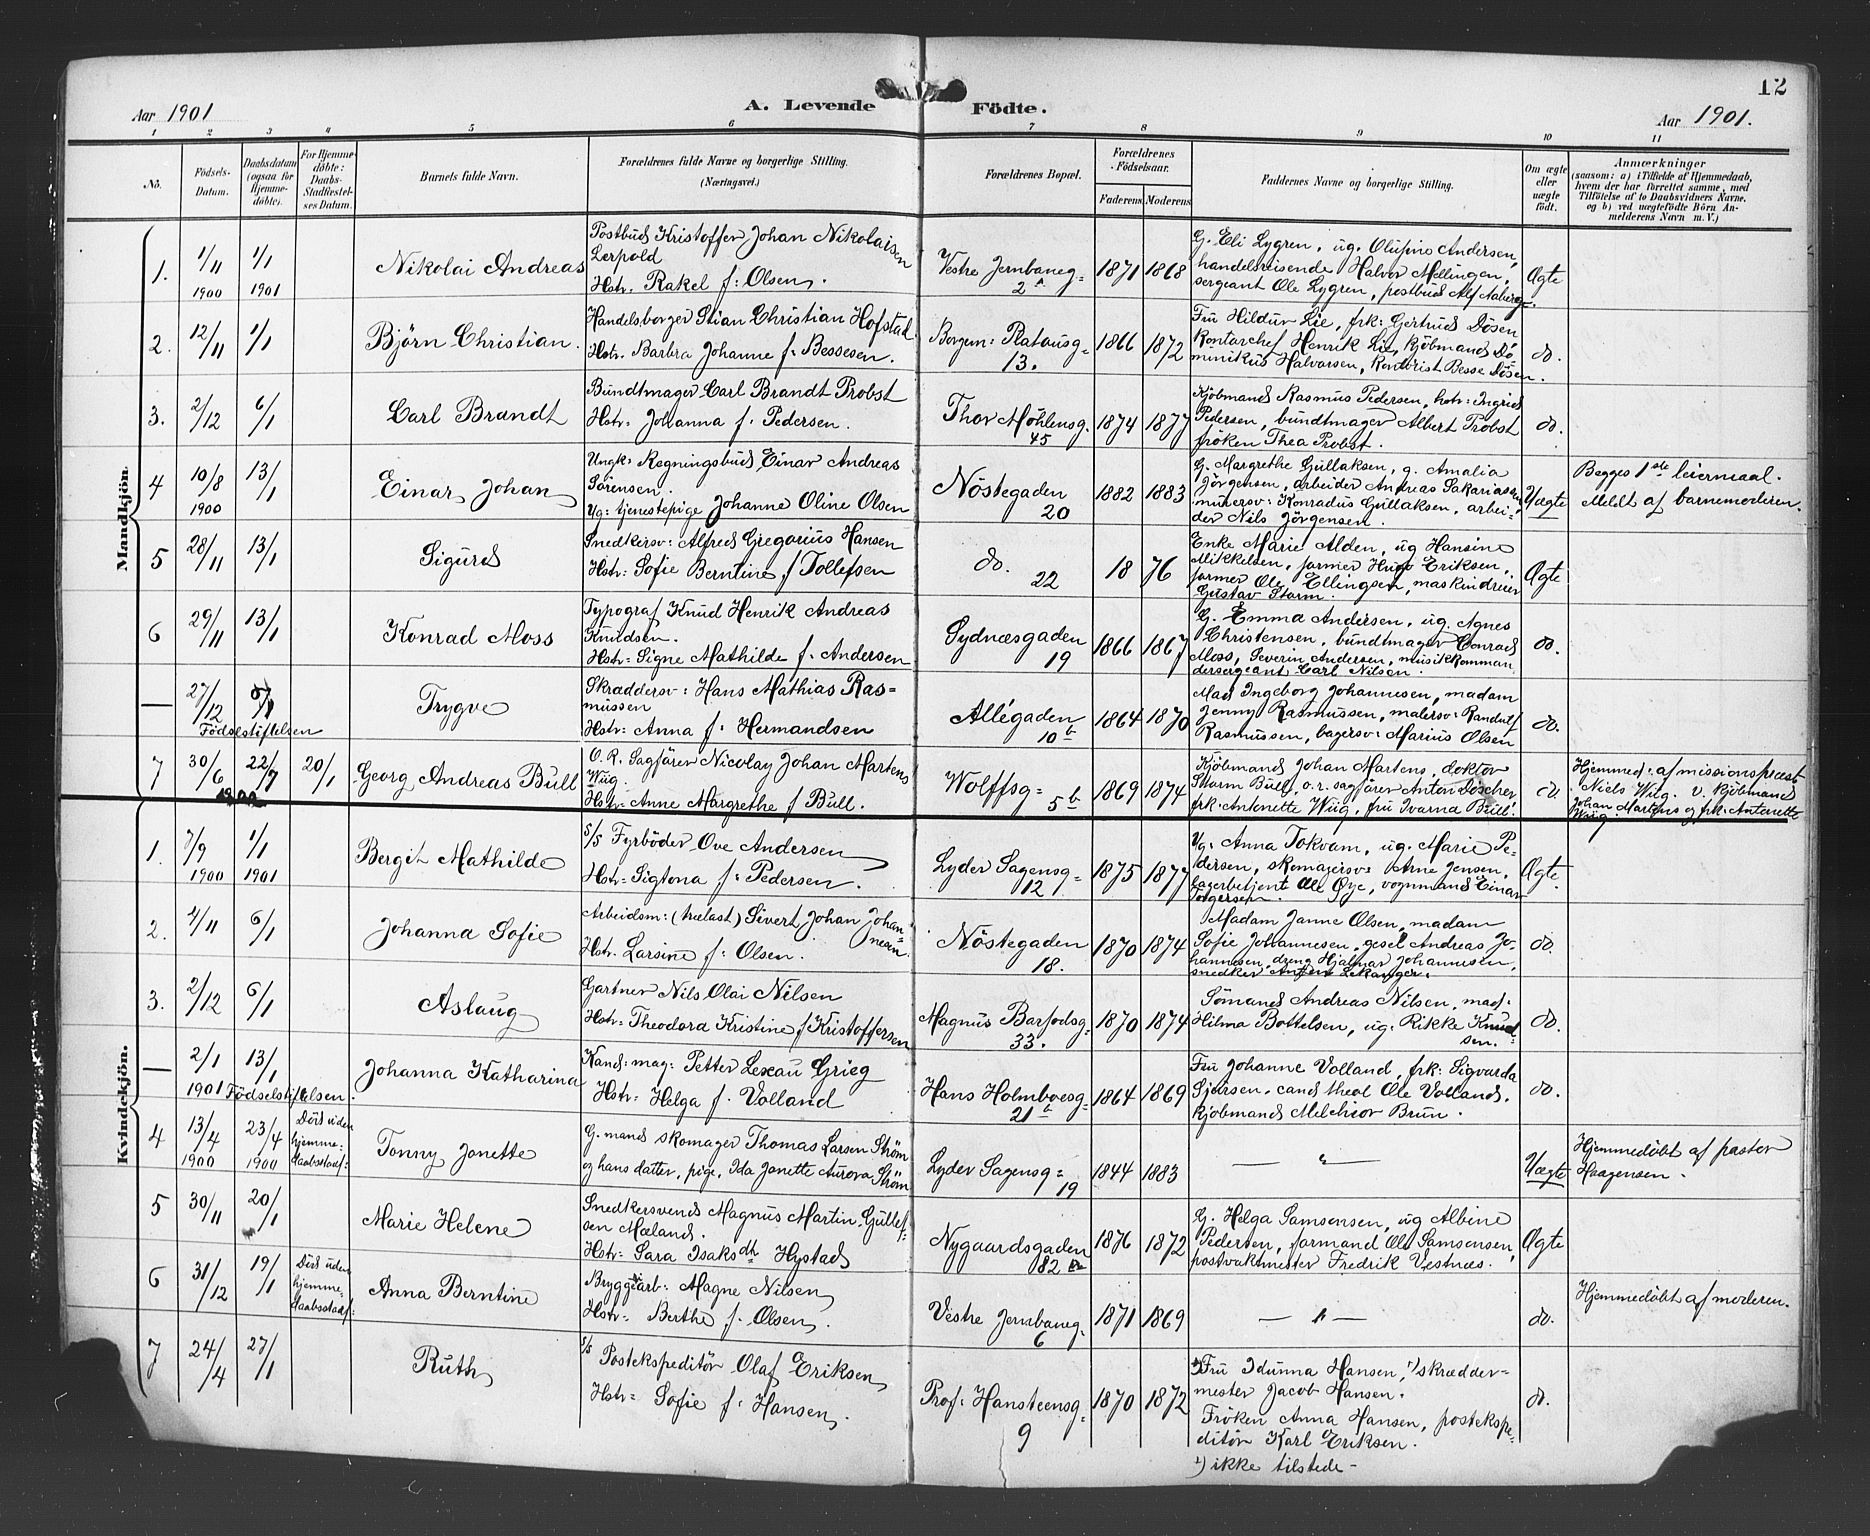 12
Aar 1901
A. Levende Födte.
Aar 1901.
1 2 3 4 5 6 7 8 9 10 11
No.
Födsels-Datum.
Daabsdatum (ogsaa för Hjemme-döbte).
For Hjemme-döbte: Daabs-Stadfæstel-ses Datum.
Barnets fulde Navn.
Forældrenes fulde Navne og borgerlige Stilling.
(Næringsvei.)
Forældrenes Bopæl.
Forældrenes Födselsaar.
Faderens Moderens
Faddernes Navne og borgerlige Stilling.
Om ægte eller uægte födt.
Anmærkninger
(saasom: a) i Tilfælde af Hjemmedaab,
hvem der har forrettet samme, med
Tilföielse af to Daabsvidners Navne.
og b) ved uægtefödte Börn An-
melderens Navn m. V.)
Mandkjön.
1. 1/11 1900 1/1 1901
Nikolai Andreas
Postbud Kristoffer Johan Nikolaisen
Lerpold
Hstr. Rakel f: Olsen.
Vestre Jernbaneg= 2a
1871 1868
G. Eli Lygren, ug. Olufine Andersen,
handelsreisende Halvor Mellingen,
sergeant Ole Lygren, postbud Alf Aaberg
Ægte
2. 12/11 1/1
Björn Christian.
Handelsborger Stian Christian Hofstad
Hstr. Barbra Johanne f. Bessesen.
13.
1866 1872
Fru Hildur Lie, frk: Gertrud Dösen
Kontorchef Henrik Lie, Kjöbmand Do
minikus Halvorsen, Kontorist Besse Dösen.
do.
3. 2/12 6/1
Carl Brandt
Bundtmager Carl Brandt Probst
Hstr. Johanna f. Pedersen.
Thor Möhlensg. 45
1874 1877
Kjöbmand Rasmus Pedersen, hstr: Ingrid
Pedersen, bundtmager Albert Probst
fröken Thea Probst.
do.
4 10/8 1900 13/1
Einar Johan
Ungk: Regningsbud Einar Andreas
Sörensen.
Ug: tjenestepige Johanne Oline Olsen
Nöstegaden 20
1882 1883
G. Margrethe Gullaksen, g. Amalia
Jörgensen, arbeider Andreas Sakariassen
murersv: Konradus Gullaksen, arbei-
der Nils Jörgensen.
Uægte
Begges 1ste leiermaal.
Meldt af barnemoderen.
5 28/11 13/1
Sigurd
Snedkersv: Alfred Gregorius Hansen
Hstr: Sofie Berntine f Tollefsen
do. 22
1876
Enke Marie Alden, ug Hansine
Mikkelsen, former Hugo Eriksen,
former Ole Ellingsen, maskindreier
Gustav Storm.
Ægte
6 29/11 13/1
Konrad Moss
Typograf Knud Henrik Andreas
Knudsen.
Hstr: Signe Mathilde f. Andersen
Sydnæsgaden 19
1866 1867
G. Emma Andersen, ug. Agnes
Christensen, bundtmager Conrad
Moss, Severin Andersen, musikkomman
dersergeant Carl Nilsen.
do.
— 27/12
Födselstiftelsen
Trygve
Skræddersv: Hans Mathias Ras=
mussen
Hstr: Anna f. Hermandsen
Allégaden 10b
1864 1870
Mad Ingeborg Johannesen, madam
Jenny Rasmussen, malersv: Randulf
Rasmussen, bagersv: Marius Olsen
do.
7 30/6 22/7 20/1
Georg Andreas Bull
O. R. Sagförer Nicolay Johan Martens
Wiig.
Hstr: Anne Margrethe f Bull.
Wolffsg= 5b
1869 1874
Kjöbmand Johan Martens, doktor
Storm Bull, o.r. sagförer Anton Döscher
frk: Antonette Wiig, fru Ivarna Bull.
do
Hjemmed: af missionspræst
Niels Wiig. v. kjöbmand
Johan Martens og frk: Antonette
Wiig.
Kvindekjön.
1. 3/9 1900 1/1 1901
Bergit Mathilde
S/S Fyrböder Ove Andersen
Hstr: Sigtona f. Pedersen.
Lyder Sagensg= 12.
1875 1877
Ug: Anna Tokvam, ug. Marie Pe-
dersen, skomagersv: Arne Jensen,
lagerbetjent Ole Öye, vognmand Einar
Torgersen.
Ægte
2. 4/11 6/1
Johanna Sofie
Arbeidsm: (trælast) Sivert Johan Johan=
nesen
Hstr. Larsine f: Olsen.
Nöstegaden 18.
1870 1874
Madam Janne Olsen, madam
Sofie Johannesen, gesel Andreas Jo-
hannesen, dreng Hjalmar Johannesen,
snedker Anfin Lekanger.
do.
3. 2/12 6/1
Aslaug
Gartner Nils Olai Nilsen
Hstr: Theodora Kristine f Kristoffersen
Magnus Barfodsg= 33.
1870 1874
Sömand Andreas Nilsen, mad:
Hilma Bottelsen, ug: Rikke Knud=
sen.
do.
— 2/1 1901 13/1
Födselstiftelsen.
Johanna Katharina
Kand: mag: Petter Lexau Grieg
Hstr: Helga f. Volland
Hans Holmboesg= 21b
1864 1869
Fru Johanne Volland, frk: Sigvarda
cand. theol Ole Volland,
Kjöbmand Melchior Brun.
do.
4 13/4 1900 23/4 1900
Död uden
hjemme=
daabsstadf:
Tonny Jonette
G. mand skomager Thomas Larsen Ström
og hans datter, pige, Ida Jonette Aurora Ström
Lyder Sagensg= 19
1844 1883
— " —
Uægte
Hjemmedöbt af pastor
Haagensen.
5 30/11 20/1
Marie Helene
Snedkersvend Magnus Martin Gullef-
sen Mæland.
Hstr: Sara Isaksdt Hystad
Nygaardsgaden 82
1876 1872
G. Helga Samsonsen, ug Albine
Pedersen, formand Ole Samsonsen,
postvaktmester Fredrik Vestnæs.
Ægte
6 31/12 19/1
Död uden
hjemme-
daabsstadf:
Anna Berntine
Bryggearb: Magne Nilsen,
Hstr: Berthe f. Olsen.
Vestre Jernbaneg. 6
1871 1869
— " —
do.
Hjemmedöbt af moderen.
7 24/4 27/1
Ruth
S/S Postekspeditör Olaf Eriksen
Hstr= Sofie f. Hansen.
Prof: Hansteensg= 9
1870 1872
Fru Idunna Hansen, 1) skrædder-
mester Jacob Hansen.
Fröken Anna Hansen, postekspe=
ditör Karl Eriksen.
1) ikke tilstede-
do.